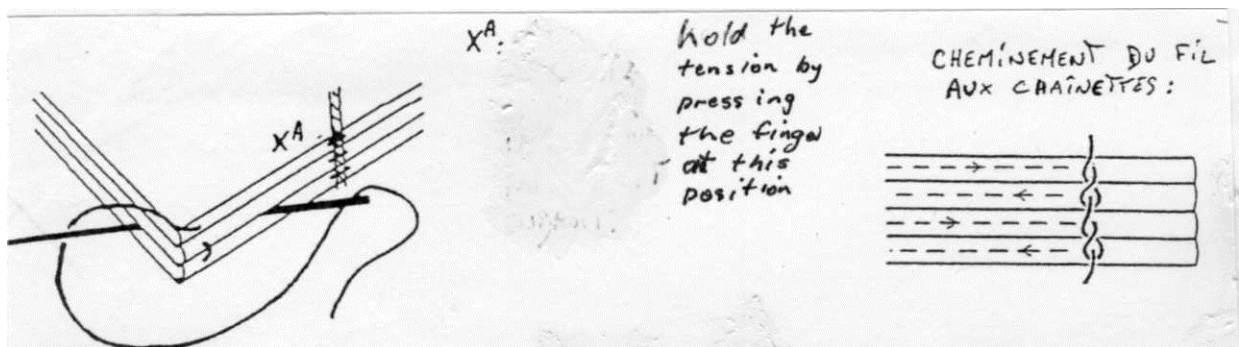 Xᴬ:
hold the
tension by
pressing
the finger
at this
position
CHEMINEMENT DU FIL
AUX CHAÎNETTES:
Xᴬ